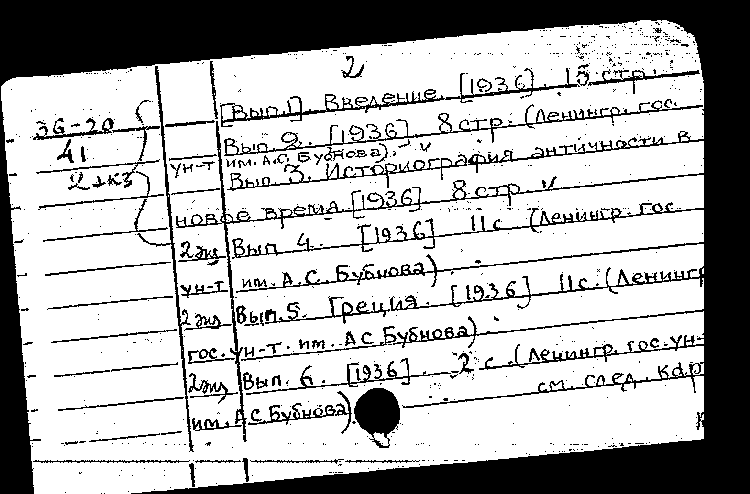 2
[Вып.1]. Введение. [1936]. 15 стр.
36-20
Вып. 2. [1936]. 8 стр. (Ленингр. гос.
41
ун-т им. А.С. Бубнова).
2 экз
Вып. 3. Историография античности в
новое время [1936] 8 стр.
2 экз Вып. 4. [1936] 11 с (Ленингр. гос.
ун-т им. А.С. Бубнова).
2 экз Вып. 5. Греция. [1936] 11 с. (Ленингр
гос. ун-т. им. А С. Бубнова).
2 экз Вып. 6. [1936]. 2 с. (Ленингр. гос. ун-
им. А С. Бубнова).
см. след. кар